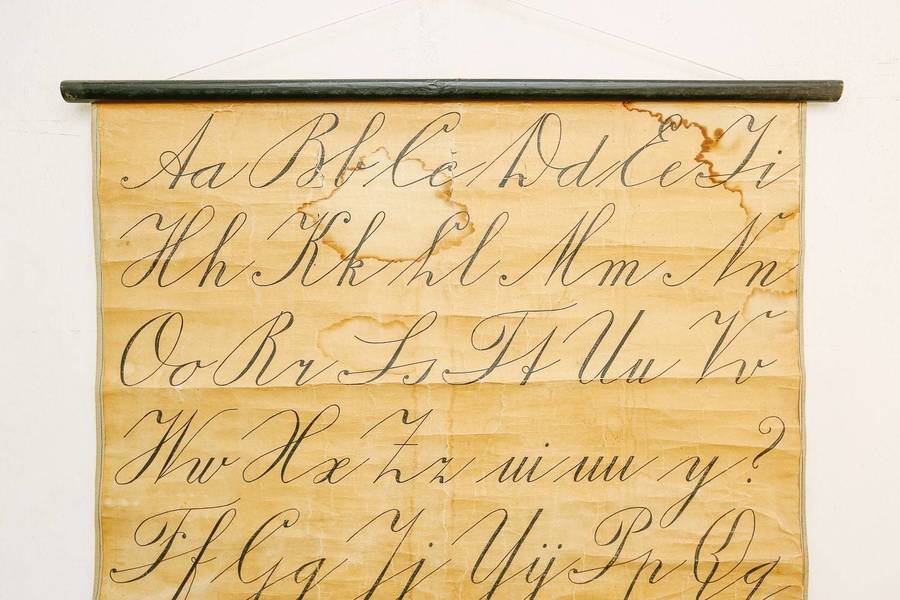 Aa Bb Cc Dd Ee Ii
Hh Kk Ll Mm Nn
Oo Rr Ss Tt Uu Vv
Ww Xx Zz ui uu y ?
Ff Gg Jj Yÿ Pp Qq